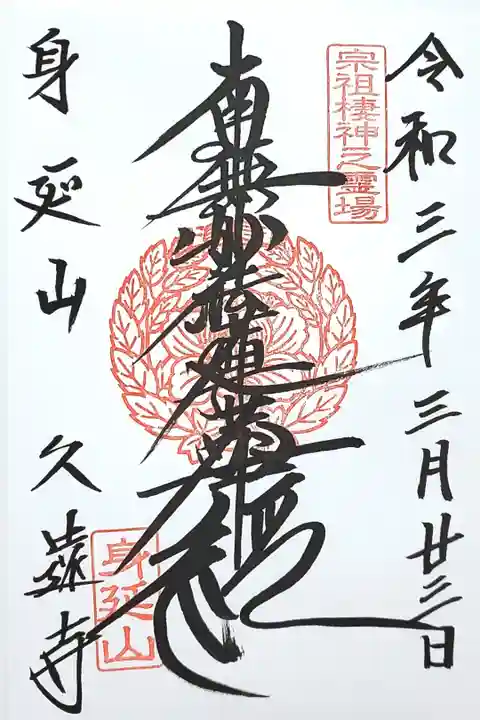 宗祖棲神之霊場
令和三年三月廿三日
南無妙法蓮華経
身延山
身延山久遠寺